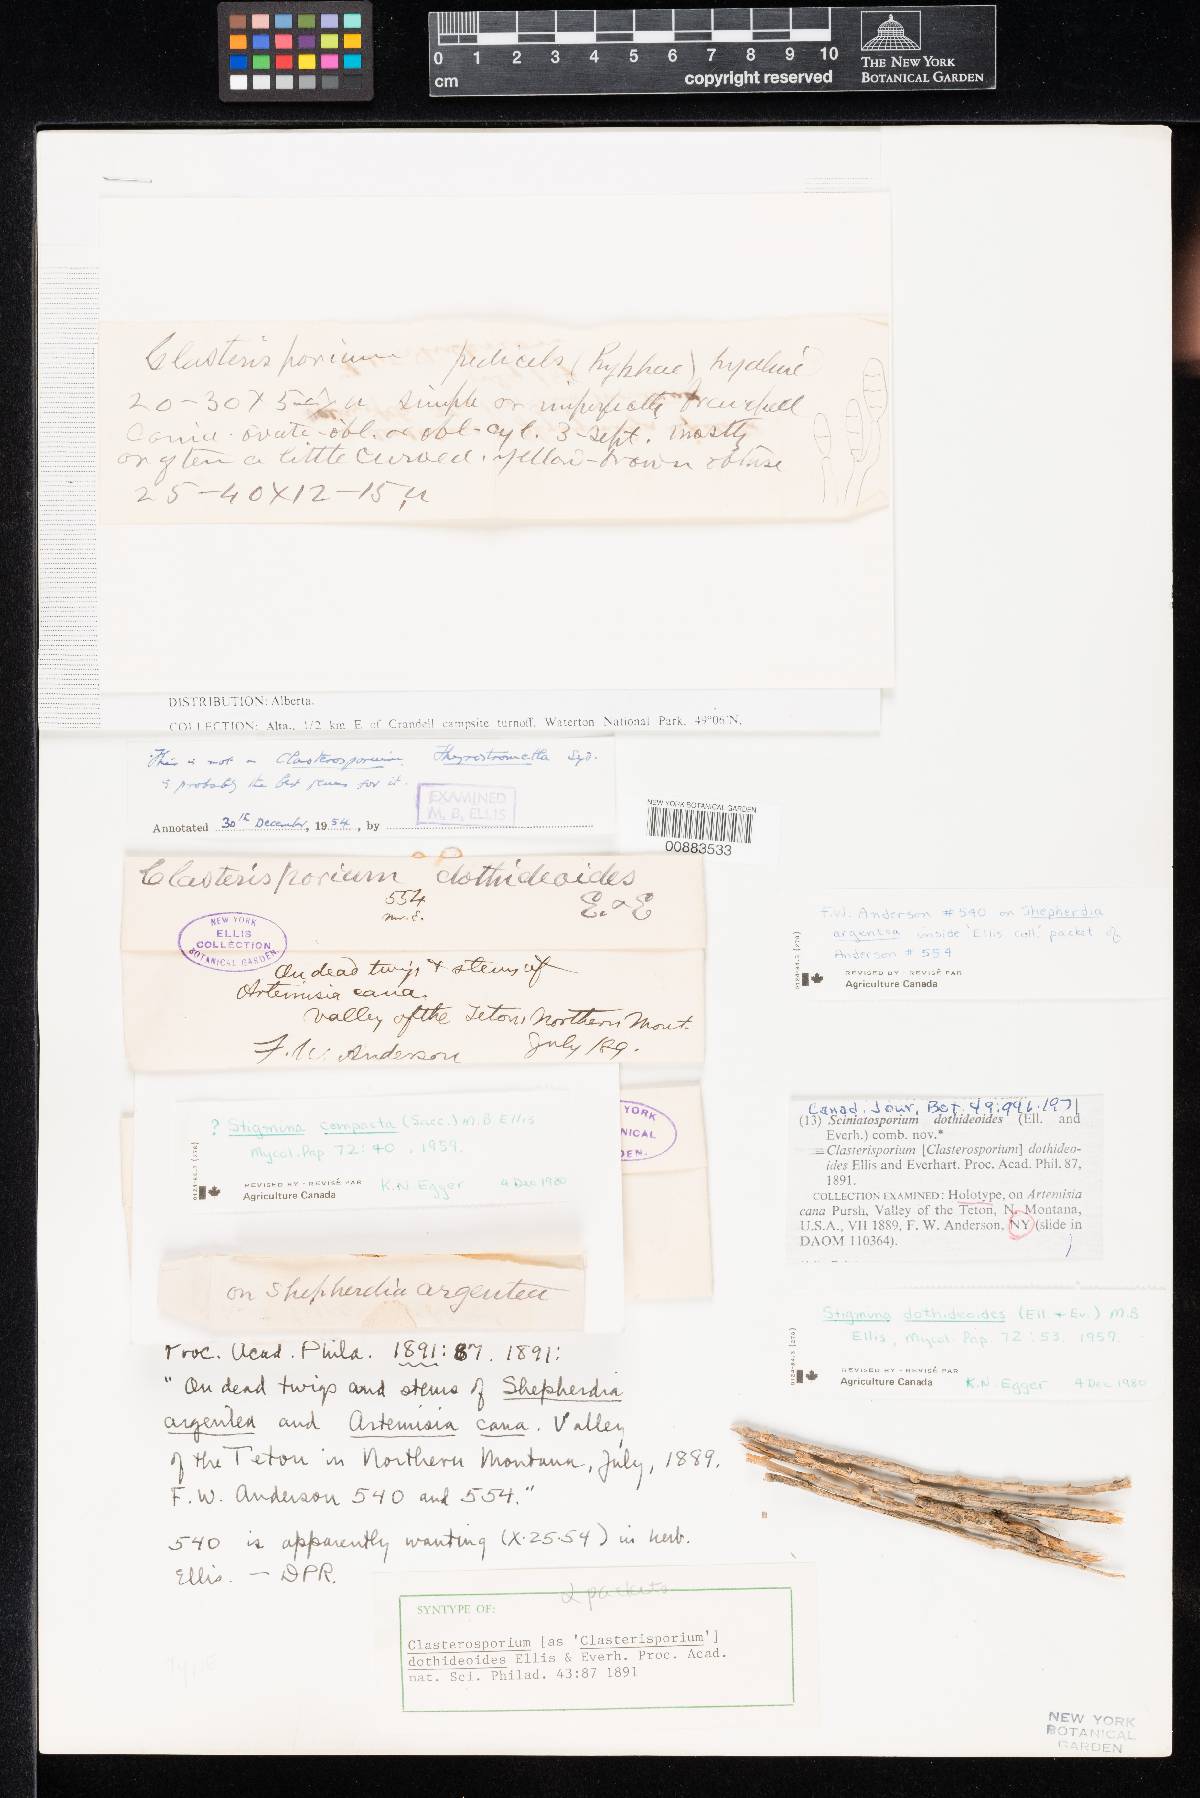 0 1 2 3 4 5 6 7 8 9 10
cm
copyright reserved
THE NEW YORK
BOTANICAL GARDEN
Clasterisporium pedicels (hyphae) hyaline
20-30 X 5 µ simple or imperfectly branched
Conid. ovate-obl. or obl-cyl. 3-sept. mostly
or often a little curved. yellow-brown obtuse
25-40 X 12-15 µ
DISTRIBUTION: Alberta.
COLLECTION: Alta., 1/2 km E of Crandell campsite turnoff, Waterton National Park, 49°06'N,
This is not a Clasterosporium. Thyrostromella Syd.
is probably the best genus for it.
EXAMINED
M. B. ELLIS
Annotated 30th December, 1954, by
NEW YORK BOTANICAL GARDEN
00883533
Clasterisporium dothideoides
554
E. & E
NEW YORK
ELLIS
COLLECTION
BOTANICAL GARDEN.
On dead twigs & stems of
Artemisia cana.
Valley of the Teton, Northern Mont.
F. W. Anderson July 189.
F.W. Anderson #540 on Shepherdia
argentea inside 'Ellis coll.' packet of
Anderson #554
REVISED BY - REVISÉ PAR
Agriculture Canada
YORK
NICAL
DEN.
? Stigmina compacta (Sacc.) M.B Ellis
Mycol. Pap 72:40, 1959.
REVISED BY - REVISÉ PAR
Agriculture Canada K.N. Egger 4 Dec 1980
on Shepherdia argentea
Canad. Jour. Bot 49:996.1971
(13) Sciniatosporium dothideoides (Ell. and
Everh.) comb. nov.*
≡ Clasterisporium [Clasterosporium] dothideo-
ides Ellis and Everhart. Proc. Acad. Phil. 87,
1891.
COLLECTION EXAMINED: Holotype, on Artemisia
cana Pursh, Valley of the Teton, N. Montana,
U.S.A., VII 1889, F. W. Anderson, NY (slide in
DAOM 110364).
Stigmina dothideoides (Ell. & Ev.) M.B
Ellis, Mycol. Pap. 72:53, 1959.
REVISED BY - REVISÉ PAR
Agriculture Canada K.N. Egger 4 Dec 1980
Proc. Acad. Phila. 1891: 87. 1891:
"On dead twigs and stems of Shepherdia
argentea and Artemisia cana. Valley
of the Teton in Northern Montana, July, 1889.
F. W. Anderson 540 and 554."
540 is apparently wanting (X.25.54) in herb.
Ellis. — DPR.
2 packets
SYNTYPE OF:
Clasterosporium [as 'Clasterisporium']
dothideoides Ellis & Everh. Proc. Acad.
nat. Sci. Philad. 43:87 1891
TYPE
NEW YORK
BOTANICAL
GARDEN